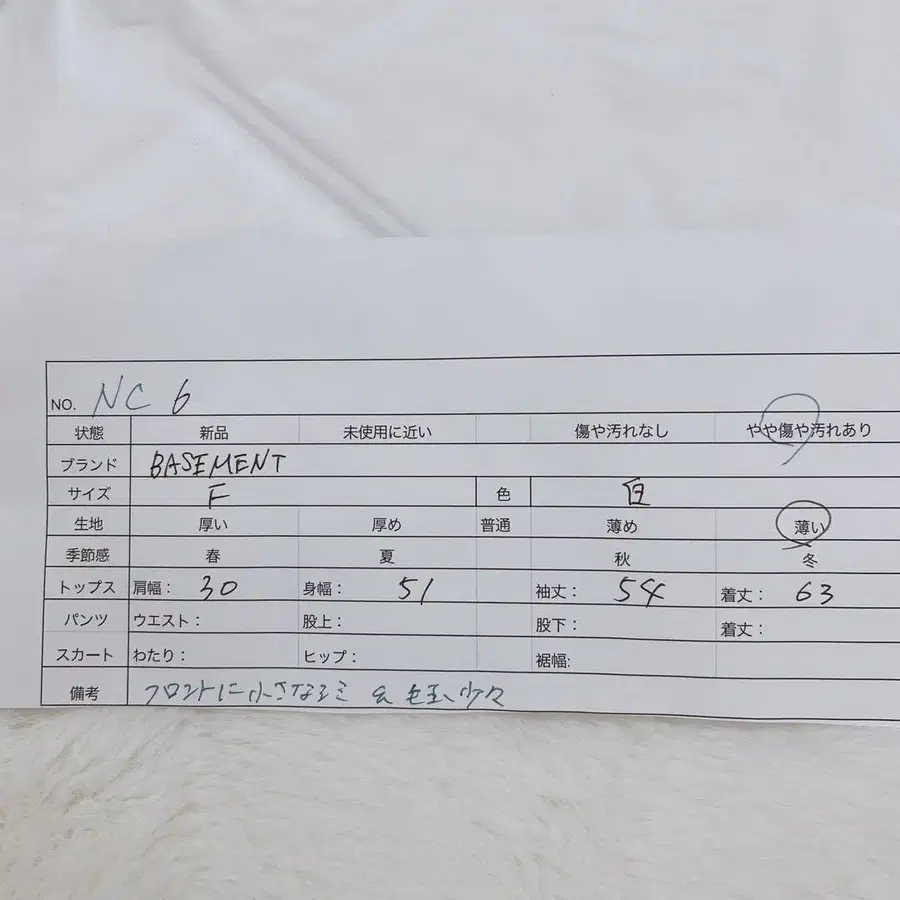 NO. NC 6
状態 新品 未使用に近い 傷や汚れなし やや傷や汚れあり
ブランド BASEMENT
サイズ F 色 白
生地 厚い 厚め 普通 薄め 薄い
季節感 春 夏 秋 冬
トップス 肩幅： 30 身幅： 51 袖丈： 54 着丈： 63
パンツ ウエスト： 股上： 股下： 着丈：
スカート わたり： ヒップ： 裾幅:
備考 フロントに小さなシミ & 毛玉少々